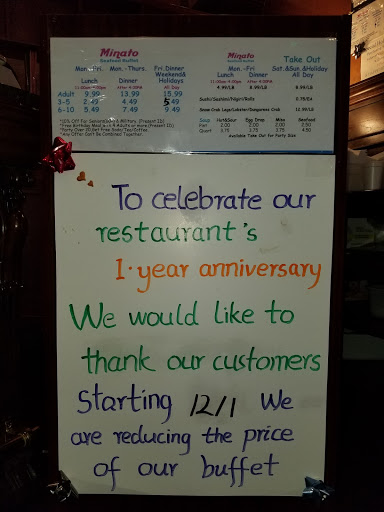 Minato
Seafood Buffet
Minato
Seafood Buffet
Take Out
Mon.-Fri. Mon.-Thurs. Fri. Dinner
Weekend&
Holidays
Lunch Dinner All Day
11:00am-4:00pm After 4:00PM
Adult 9.99 13.99 15.99
3-5 2.49 4.49 5.49
6-10 5.49 7.49 9.49
*10% Off For Seniors(60+) & Military. (Present ID)
*Any Offer Can't Be Combined Together.
Mon.-Fri Mon.-Fri Sat.&Sun.&Holiday
Lunch Dinner All Day
11:00am-4:00pm After 4:00PM
4.99/LB 8.99/LB 8.99/LB
Sushi/Sashimi/Nigiri/Rolls 0.75/EA
Snow Crab Legs/Lobster/Dungeness Crab 11.99/LB
Soup Hot&Sour Egg Drop Miso Seafood
Pint 2.00 2.00 2.00 2.50
Quart 3.75 3.75 3.75 4.50
Available Take Out for Party Size
To celebrate our
restaurant's
1-year anniversary
We would like to
thank our customers
Starting 12/1 We
are reducing the price
of our buffet